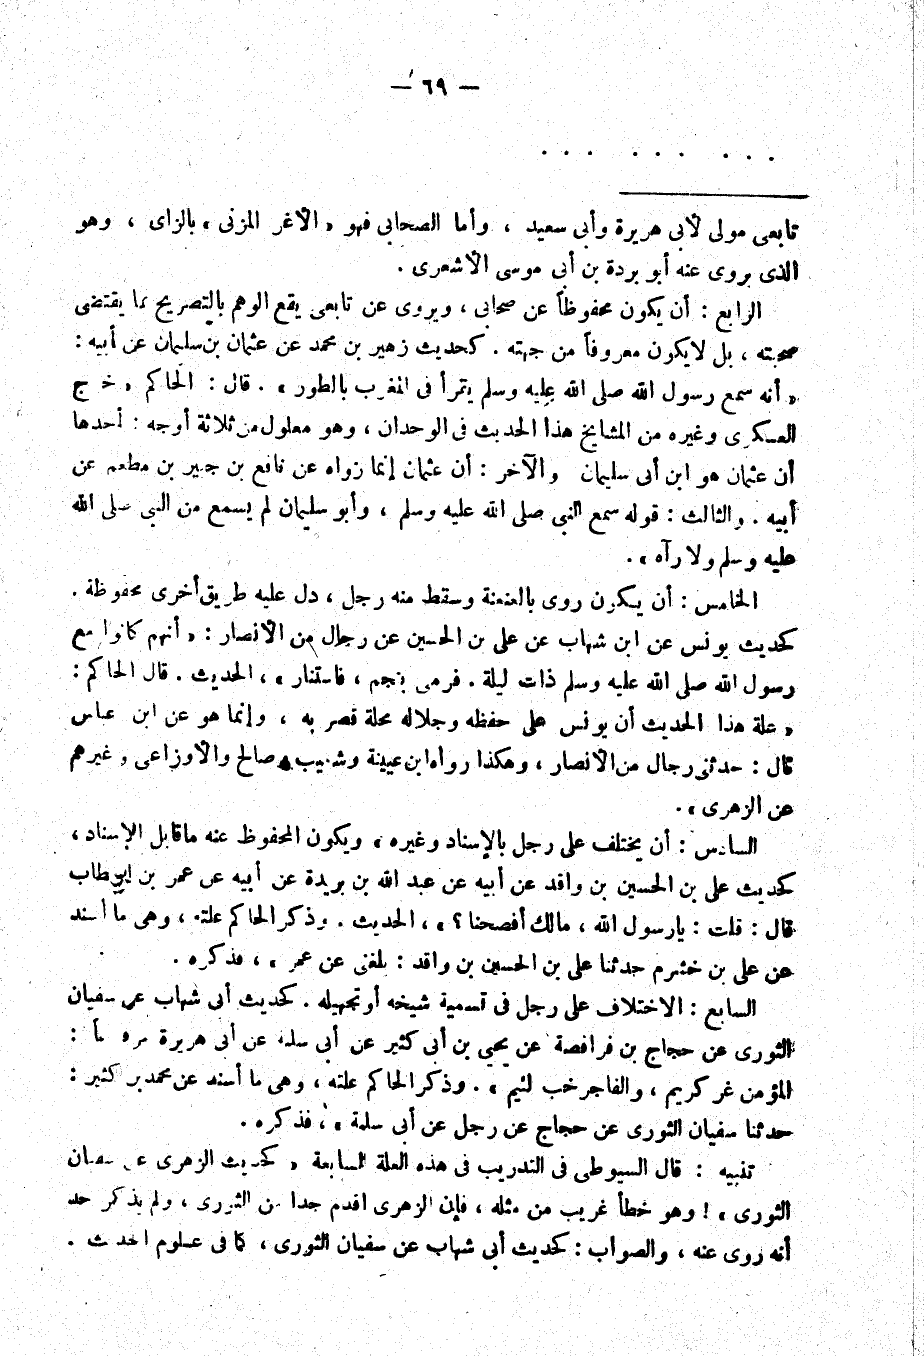 — ٦٩ —
. . . . . . . . .
تابعى مولى لأبى هريرة وأبى سعيد ، وأما الصحابى فهو « الأغر المزنى » بالزاى ، وهو
الذى يروى عنه أبو بردة بن أبى موسى الأشعرى .
الرابع : أن يكون محفوظاً عن صحابى ، ويروى عن تابعى يقع الوهم بالتصريح بما يقتضى
صحبته ، بل لا يكون معروفاً من جهته . كحديث زهير بن محمد عن عثمان بن سليمان عن أبيه :
« أنه سمع رسول الله صلى الله عليه وسلم يقرأ فى المغرب بالطور » . قال : الحاكم « خرج
العسكرى وغيره من المشايخ هذا الحديث فى الوحدان ، وهو معلول من ثلاثة أوجه : أحدها
أن عثمان هو ابن أبى سليمان والآخر : أن عثمان إنما رواه عن نافع بن جبير بن مطعم عن
أبيه . والثالث : قوله سمع النبى صلى الله عليه وسلم ، وأبو سليمان لم يسمع من النبى صلى الله
عليه وسلم ولا رآه » .
الخامس : أن يكون روى بالعنعنة وسقط منه رجل ، دل عليه طريق أخرى محفوظة .
كحديث يونس عن ابن شهاب عن على بن الحسين عن رجال من الأنصار : « أنهم كانوا مع
رسول الله صلى الله عليه وسلم ذات ليلة . فرمى بنجم ، فاستنار » ، الحديث . قال الحاكم :
« علة هذا الحديث أن يونس على حفظه وجلاله محلة قصر به ، وإنما هو عن ابن عباس
قال : حدثنى رجال من الأنصار ، وهكذا رواه ابن عيينة وشعيب وصالح والأوزاعى وغيرهم
عن الزهرى » .
السادس : أن يختلف على رجل بالإسناد وغيره ، ويكون المحفوظ عنه ما قابل الإسناد ،
كحديث على بن الحسين بن واقد عن أبيه عن عبد الله بن بريدة عن أبيه عن عمر بن الخطاب
قال : قلت : يا رسول الله ، مالك أفصحنا ؟ » ، الحديث . وذكر الحاكم علته ، وهى ما أسند
عن على بن خشرم حدثنا على بن الحسين بن واقد : بلغنى عن عمر » ، فذكره .
السابع : الاختلاف على رجل فى تسمية شيخه أو تجهيله . كحديث أبى شهاب عن سفيان
الثورى عن حجاج بن فرافصة عن يحيى بن أبى كثير عن أبى سلمة عن أبى هريرة مرفوعاً :
المؤمن غر كريم ، والفاجر خب لئيم » . وذكر الحاكم علته ، وهى ما أسند عن محمد بن كثير :
حدثنا سفيان الثورى عن حجاج عن رجل عن أبى سلمة » ، فذكره .
تنبيه : قال السيوطى فى التدريب فى هذه العلة السابعة « كحديث الزهرى عن سفيان
الثورى » ! وهو خطأ غريب من مثله ، فإن الزهرى أقدم جداً من الثورى ، ولم يذكر أحد
أنه روى عنه ، والصواب : كحديث أبى شهاب عن سفيان الثورى ، كما فى علوم الحديث .